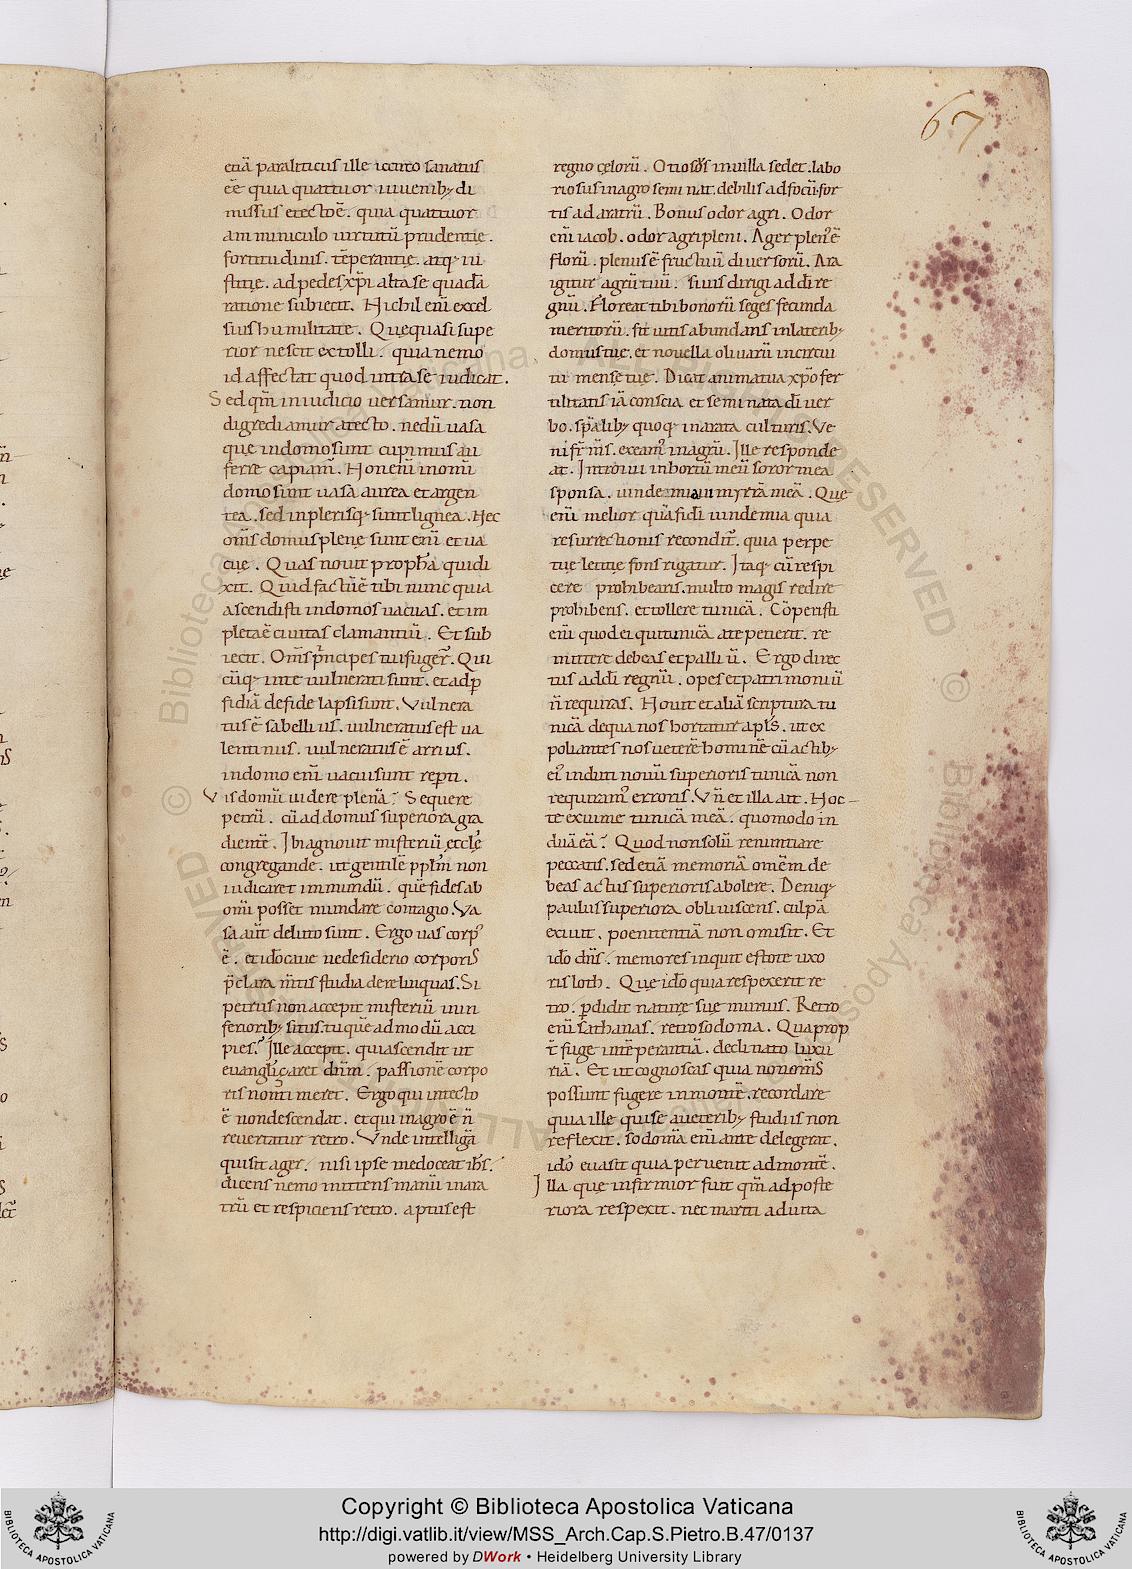 67
etiā paraliticus ille iccirco sanatus
eē quia quattuor iuvenibꝫ di
missus e tecto ē. quia quattuor
amminiculo uirtutū prudentię.
fortitudinis. tēperantię. atqꝫ iu
stitię. ad pedes xp̄i alta se quadā
ratione subiecit. Nichil eni excel
sius humilitate. Quę quasi supe
rior nescit extolli. quia nemo
id affectat quod intra se iudicat.
Sed qm̄ in iudicio uersamur. non
digrediamur a tecto. nedū uasa
que in domo sunt cupimus au
ferre capiam̄. Non eni in omi
domo sunt uasa aurea et argen
tea. sed in plerisqꝫ sunt lignea. Hec
om̄s domus plenę sunt eni et ua
cuę. Quas nouit proph̄a qui di
xit. Quid factū ē tibi nunc quia
ascendisti in domos uacuas. et im
pleta ē ciuitas clamantiū. Et sub
iecit. Om̄s p̄ncipes tui fuger̄. Qui
cūqꝫ in te uulnerati sunt. et ad ꝑ
fidiā de fide lapsi sunt. Vulnera
tus ē sabellius. uulneratus est ua
lentinus. uulneratus ē arrius.
in domo eni uacui sunt repti.
Vis domū uidere plenā? Sequere
petrū. cū ad domus superiora gra
dientē. Ibi agnouit misteriū ęcclę
congregande. ut gentilē pplm̄ non
iudicaret immundū. quē fides ab
omi posset mundare cōtagio. Va
sa aut̄ de luto sunt. Ergo uas corp̄
ē. et ido caue ne desiderio corporis
p̄clara mtis studia derelinquas. Si
petrus non accepit misteriū in in
feriorib; situs. tu quēadmodū acci
pies? Ille accepit. qui ascendit ut
euanglizaret dn̄m. passionē corpo
ris non timeret. Ergo qui in tecto
ē non descendat. et qui in agro ē n̄
reuertatur retro. Vnde intelligā
qui sit ager. nisi ipse me doceat ih̄s.
dicens nemo mittens manū in ara
trū et respiciens retro. aptus est
regno cęlorū. Otiosus in uilla sedet. labo
riosus in agro seminat. debilis ad focū. for
tis ad aratrū. Bonus odor agri. Odor
eni iacob. odor agri pleni. Ager plen' ē
florū. plenus ē fructuū diuersorū. Ara
igitur agrū tuū. si uis dirigi ad di re
gnū. Floreat tibi bonorū seges fecunda
meritorū. sit uitis abundans in lateribꝫ
domus tuę. et nouella oliuarū in circui
tu mensę tuę. Dicat anima tua xp̄o fer
tilitatis iā conscia et seminata di uer
bo. sp̄alibꝫ quoqꝫ inarata culturis. Ve
ni fr̄ ms. exeam' in agrū. Ille responde
at. Introiui in hortū meū soror mea
sponsa. uindemiaui myrrā meā. Que
eni melior quā fidi uindemia quia
resurrectionis recondit̄. quia perpe
tuę letitię fons rigatur. Itaqꝫ cū respi
cere prohibearis. multo magis redire
prohiberis. et tollere tunicā. Cōperisti
eni quod ei qui tunicā a te petierit. re
mittere debeas et palliū. Ergo direc
tus ad di regnū. opes et patrimoniū
n̄ requiras. Nouit et aliā scriptura tu
nicā de qua nos hortatur apl̄s. ut ex
poliantes nos ueterē hominē cū actibꝫ
ei' induti nouū superioris tunicā non
requiram' erroris. Vn̄ et illa ait. Noc
te exui me tunicā meā. quomodo in
duā eā? Quod non solū renuntiare
peccatis. sed etiā memoriā omēm de
beas actus superioris abolere. Deniqꝫ
paulus superiora obliuiscens. culpā
exiuit. poenitentiā non omisit. Et
ido dn̄s. memores inquit estote uxo
ris loth. Que ido quia respexerit re
tro. ꝑdidit naturę suę munus. Retro
eni sathanas. retro sodoma. Quaprop
t̄ fuge intēperantiā. declinato luxu
riā. Et ut cognoscas quia non om̄s
possunt fugere in montē. recordare
quia ille qui se a ueteribꝫ studiis non
reflexit. sodomā eni ante delegerat.
ido euasit quia peruenit ad montē.
Illa que infirmior fuit qm̄ ad poste
riora respexit. nec mariti adiuta
Copyright © Biblioteca Apostolica Vaticana
http://digi.vatlib.it/view/MSS_Arch.Cap.S.Pietro.B.47/0137
powered by DWork • Heidelberg University Library